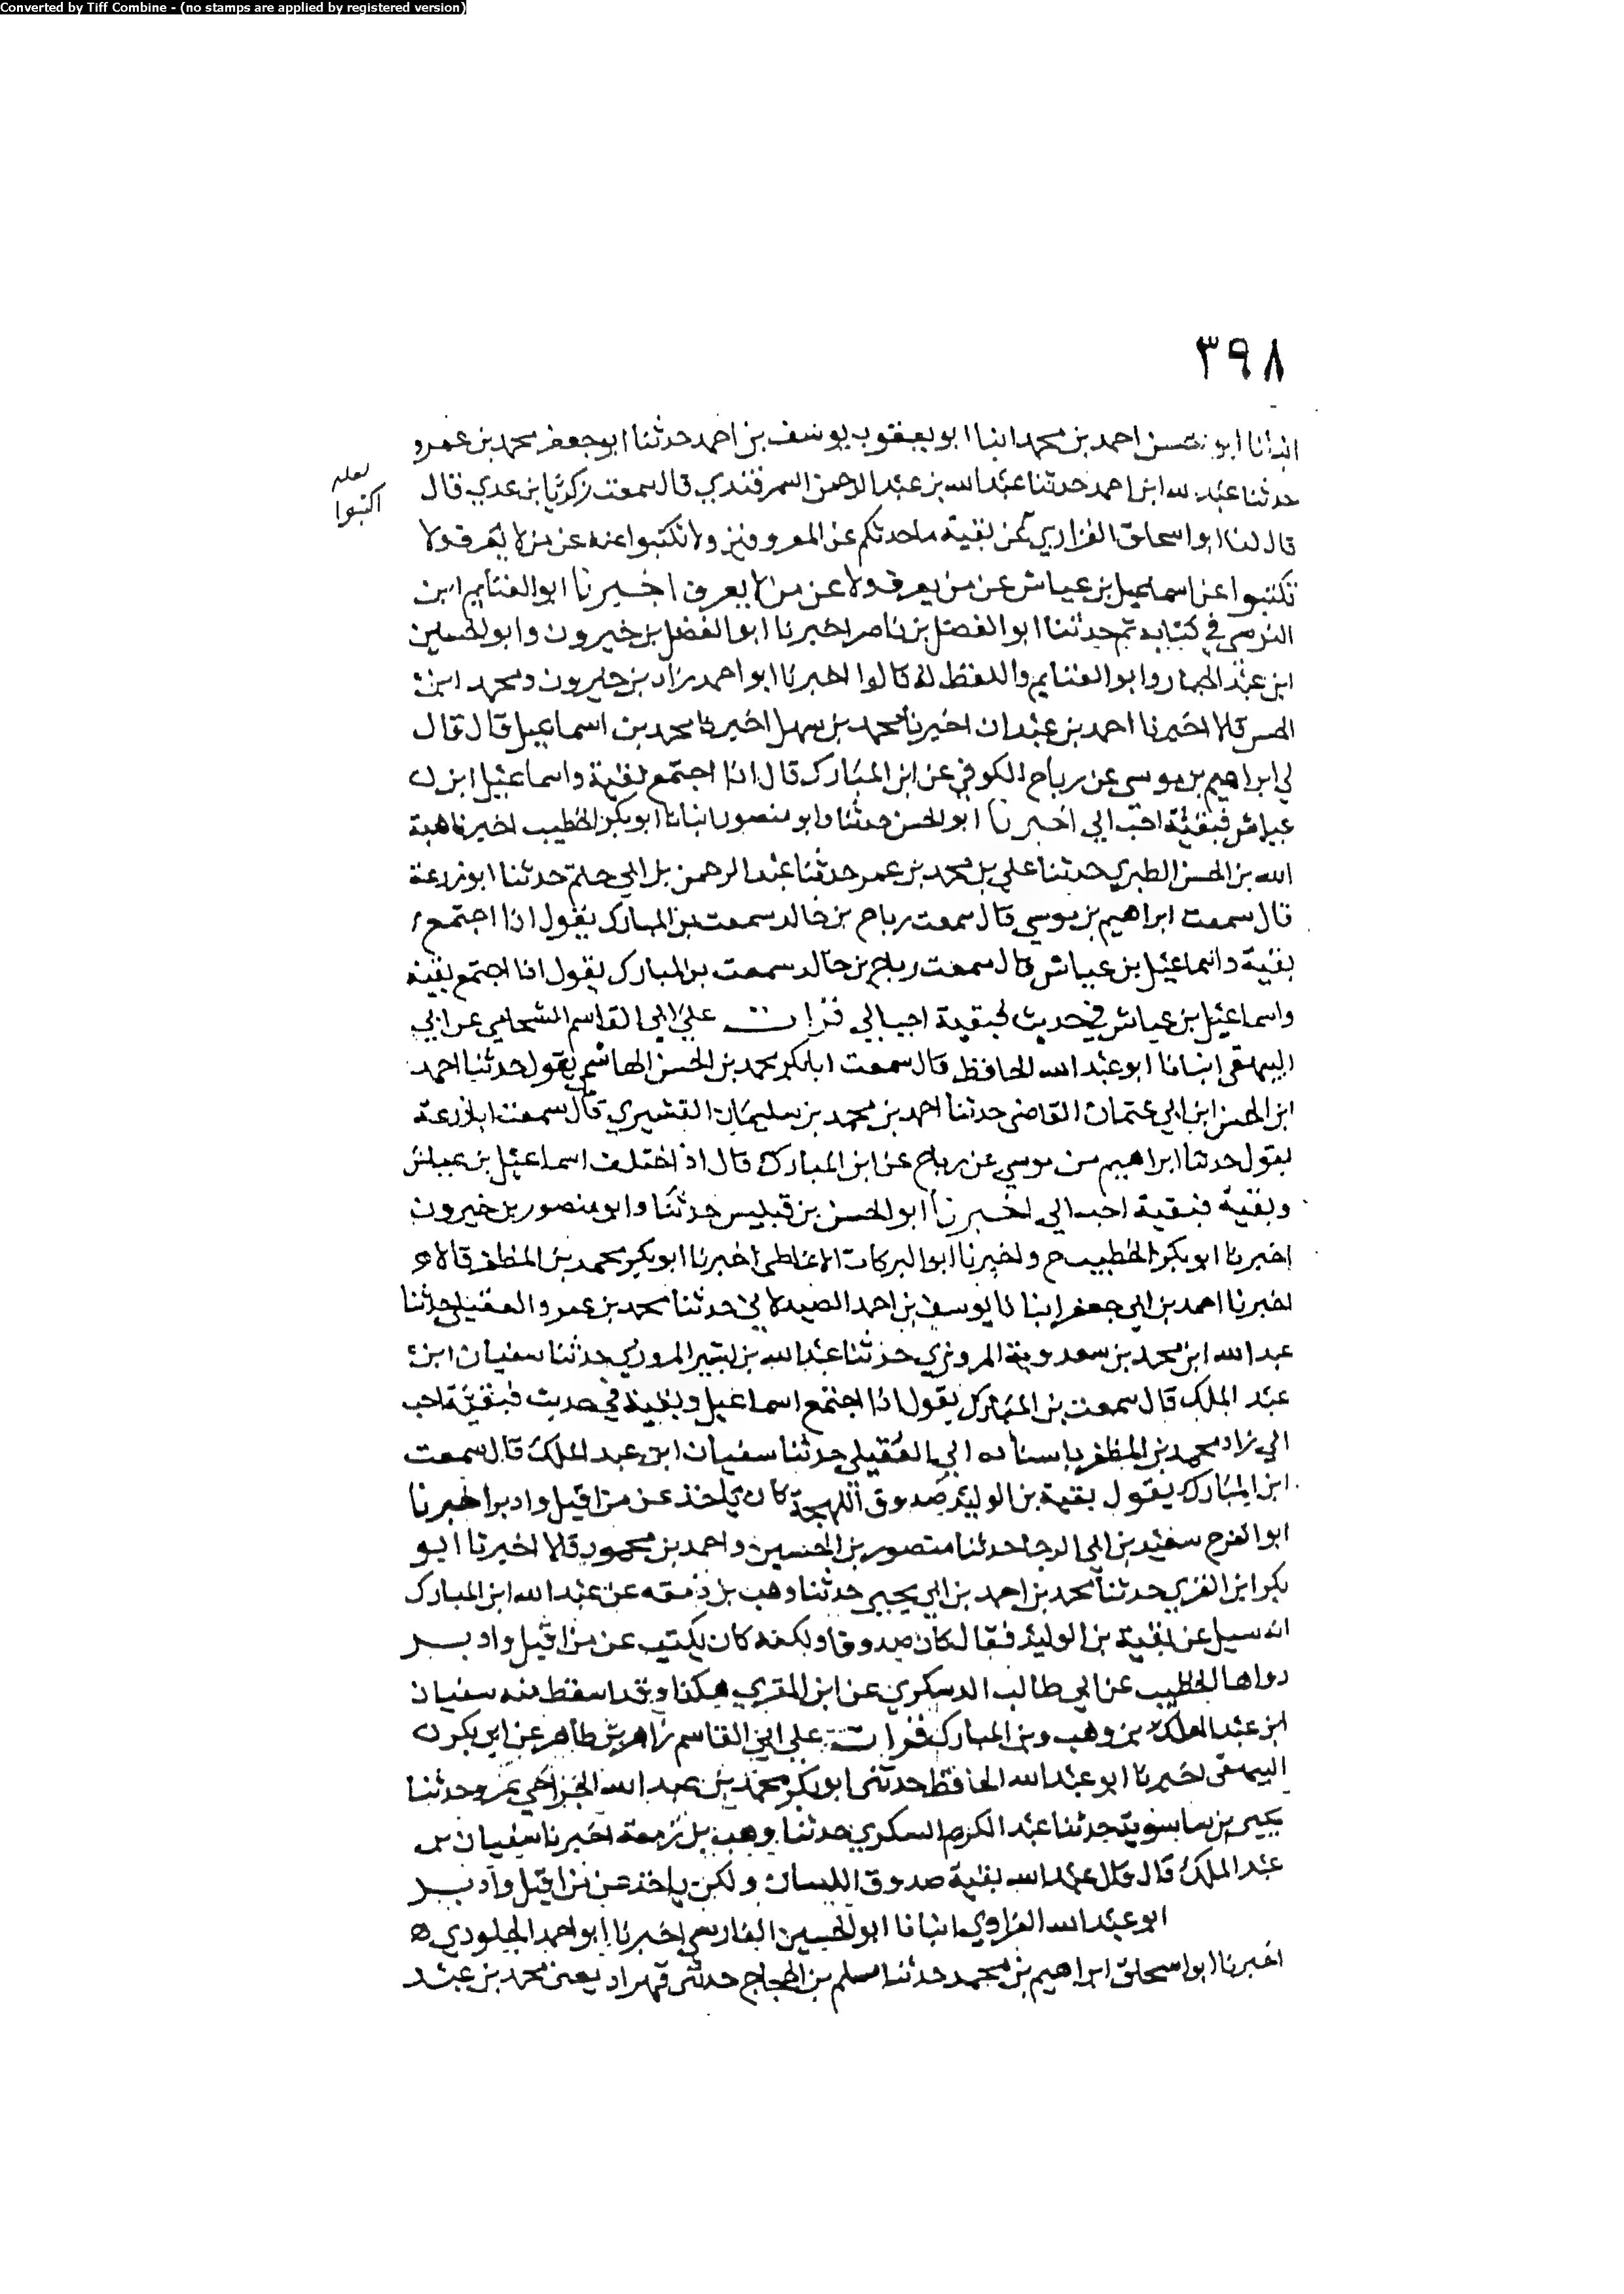 Converted by Tiff Combine - (no stamps are applied by registered version)
٣٩٨
انبانا ابو الحسن احمد بن محمد انبا ابو يعقوب يوسف بن احمد حدثنا ابو جعفر محمد بن عمرو
حدثنا عبد الله ابن احمد حدثنا عبد الله بن عبد الرحمن السمرقندي قال سمعت زكريا بن عدي قال
لعله
اكتبوا
قال لنا ابو اسحاق الفزاري عن بقية ما حدثكم عن المعروفين ولا تكتبوا عنه عن من لا يعرف ولا
تكتبوا عن اسماعيل بن عياش عن من يعرف ولا عن من لا يعرف اخبرنا ابو الغنايم ابن
النرسي في كتابه ثم حدثنا ابو الفضل بن ناصر اخبرنا ابو الفضل بن خيرون وابو الحسين
ابن عبد الجبار وابو الغنايم واللفظ له قالوا اخبرنا ابو احمد زاد بن خيرون ومحمد ابن
الحسن قالا اخبرنا احمد بن عبدان اخبرنا محمد بن سهل اخبرنا محمد بن اسماعيل قال قال
لي ابراهيم بن موسى عن رباح الكوفي عن ابن المبارك قال اذا اجتمع بقية واسماعيل ابن
عياش فبقية احب الي اخبرنا ابو الحسن حدثنا وابو منصور انبانا ابو بكر الخطيب اخبرنا هبة
الله بن الحسن الطبري حدثنا علي بن محمد بن عمر حدثنا عبد الرحمن بن ابي حاتم حدثنا ابو زرعة
قال سمعت ابراهيم بن موسى قال سمعت رباح بن خالد سمعت بن المبارك يقول اذا اجتمع
بقية واسماعيل بن عياش قال سمعت رباح بن خالد سمعت بن المبارك يقول اذا اجتمع بقية
واسماعيل بن عياش في حديث فبقية احب الي قرات علي ابي القاسم الشحامي عن ابي
البيهقي انبانا ابو عبد الله الحافظ قال سمعت ابا بكر محمد بن الحسن الهاشمي يقول حدثنا احمد
ابن الحسن ابن ابي عثمان القاضي حدثنا احمد بن محمد بن سليمان القشيري قال سمعت ابا زرعة
يقول حدثنا ابراهيم من موسى عن رباح عن ابن المبارك قال اذا اختلف اسماعيل بن عياش
وبقية فبقية احب الي اخبرنا ابو الحسن بن قبيس حدثنا وابو منصور بن خيرون
اخبرنا ابو بكر الخطيب ح واخبرنا ابو البركات الانماطي اخبرنا ابو بكر محمد بن المظفر قالا
اخبرنا احمد بن ابي جعفر انبانا يوسف بن احمد الصيدلاني حدثنا محمد بن عمرو العقيلي حدثنا
عبد الله ابن محمد بن سعدوية المروزي حدثنا عبد الله بن بشير المروزي حدثنا سفيان ابن
عبد الملك قال سمعت بن المبارك يقول اذا اجتمع اسماعيل وبقية في حديث فبقية احب
الي زاد محمد بن المظفر باسناده الي العقيلي حدثنا سفيان ابن عبد الملك قال سمعت
ابن المبارك يقول بقية بن الوليد صدوق اللهجة كان ياخذ عن من اقبل وادبر اخبرنا
ابو الفرج سعيد بن ابي الرجا حدثنا منصور بن الحسين واحمد بن محمود قالا اخبرنا ابو
بكر ابن المقري حدثنا محمد بن احمد بن ابي يحيى حدثنا وهب بن زمعه عن عبد الله ابن المبارك
انه سيل عن بقية بن الوليد فقال كان صدوقا ولكنه كان يكتب عن من اقبل وادبر
رواها الخطيب عن ابي طالب الدسكري عن ابن المقري هكذا وقد اسقط منه سفيان
ابن عبد الملك بن وهب وبن المبارك قرات علي ابي القاسم زاهر بن طاهر عن ابي بكر
البيهقي اخبرنا ابو عبد الله الحافظ حدثني ابو بكر محمد بن عبد الله الجراحي بمرو حدثنا
يحيى بن ساسوية حدثنا عبد الكريم السكري حدثنا وهب بن زمعة اخبرنا سفيان بن
عبد الملك قال قال عبد الله بقية صدوق اللسان ولكن ياخذ عن من اقبل وادبر
ابو عبد الله الفراوي انبانا ابو الحسين الفارسي اخبرنا ابو احمد الجلودي
اخبرنا ابو اسحاق ابراهيم بن محمد حدثنا مسلم بن الحجاج حدثني قهزاد يعني محمد بن عبد